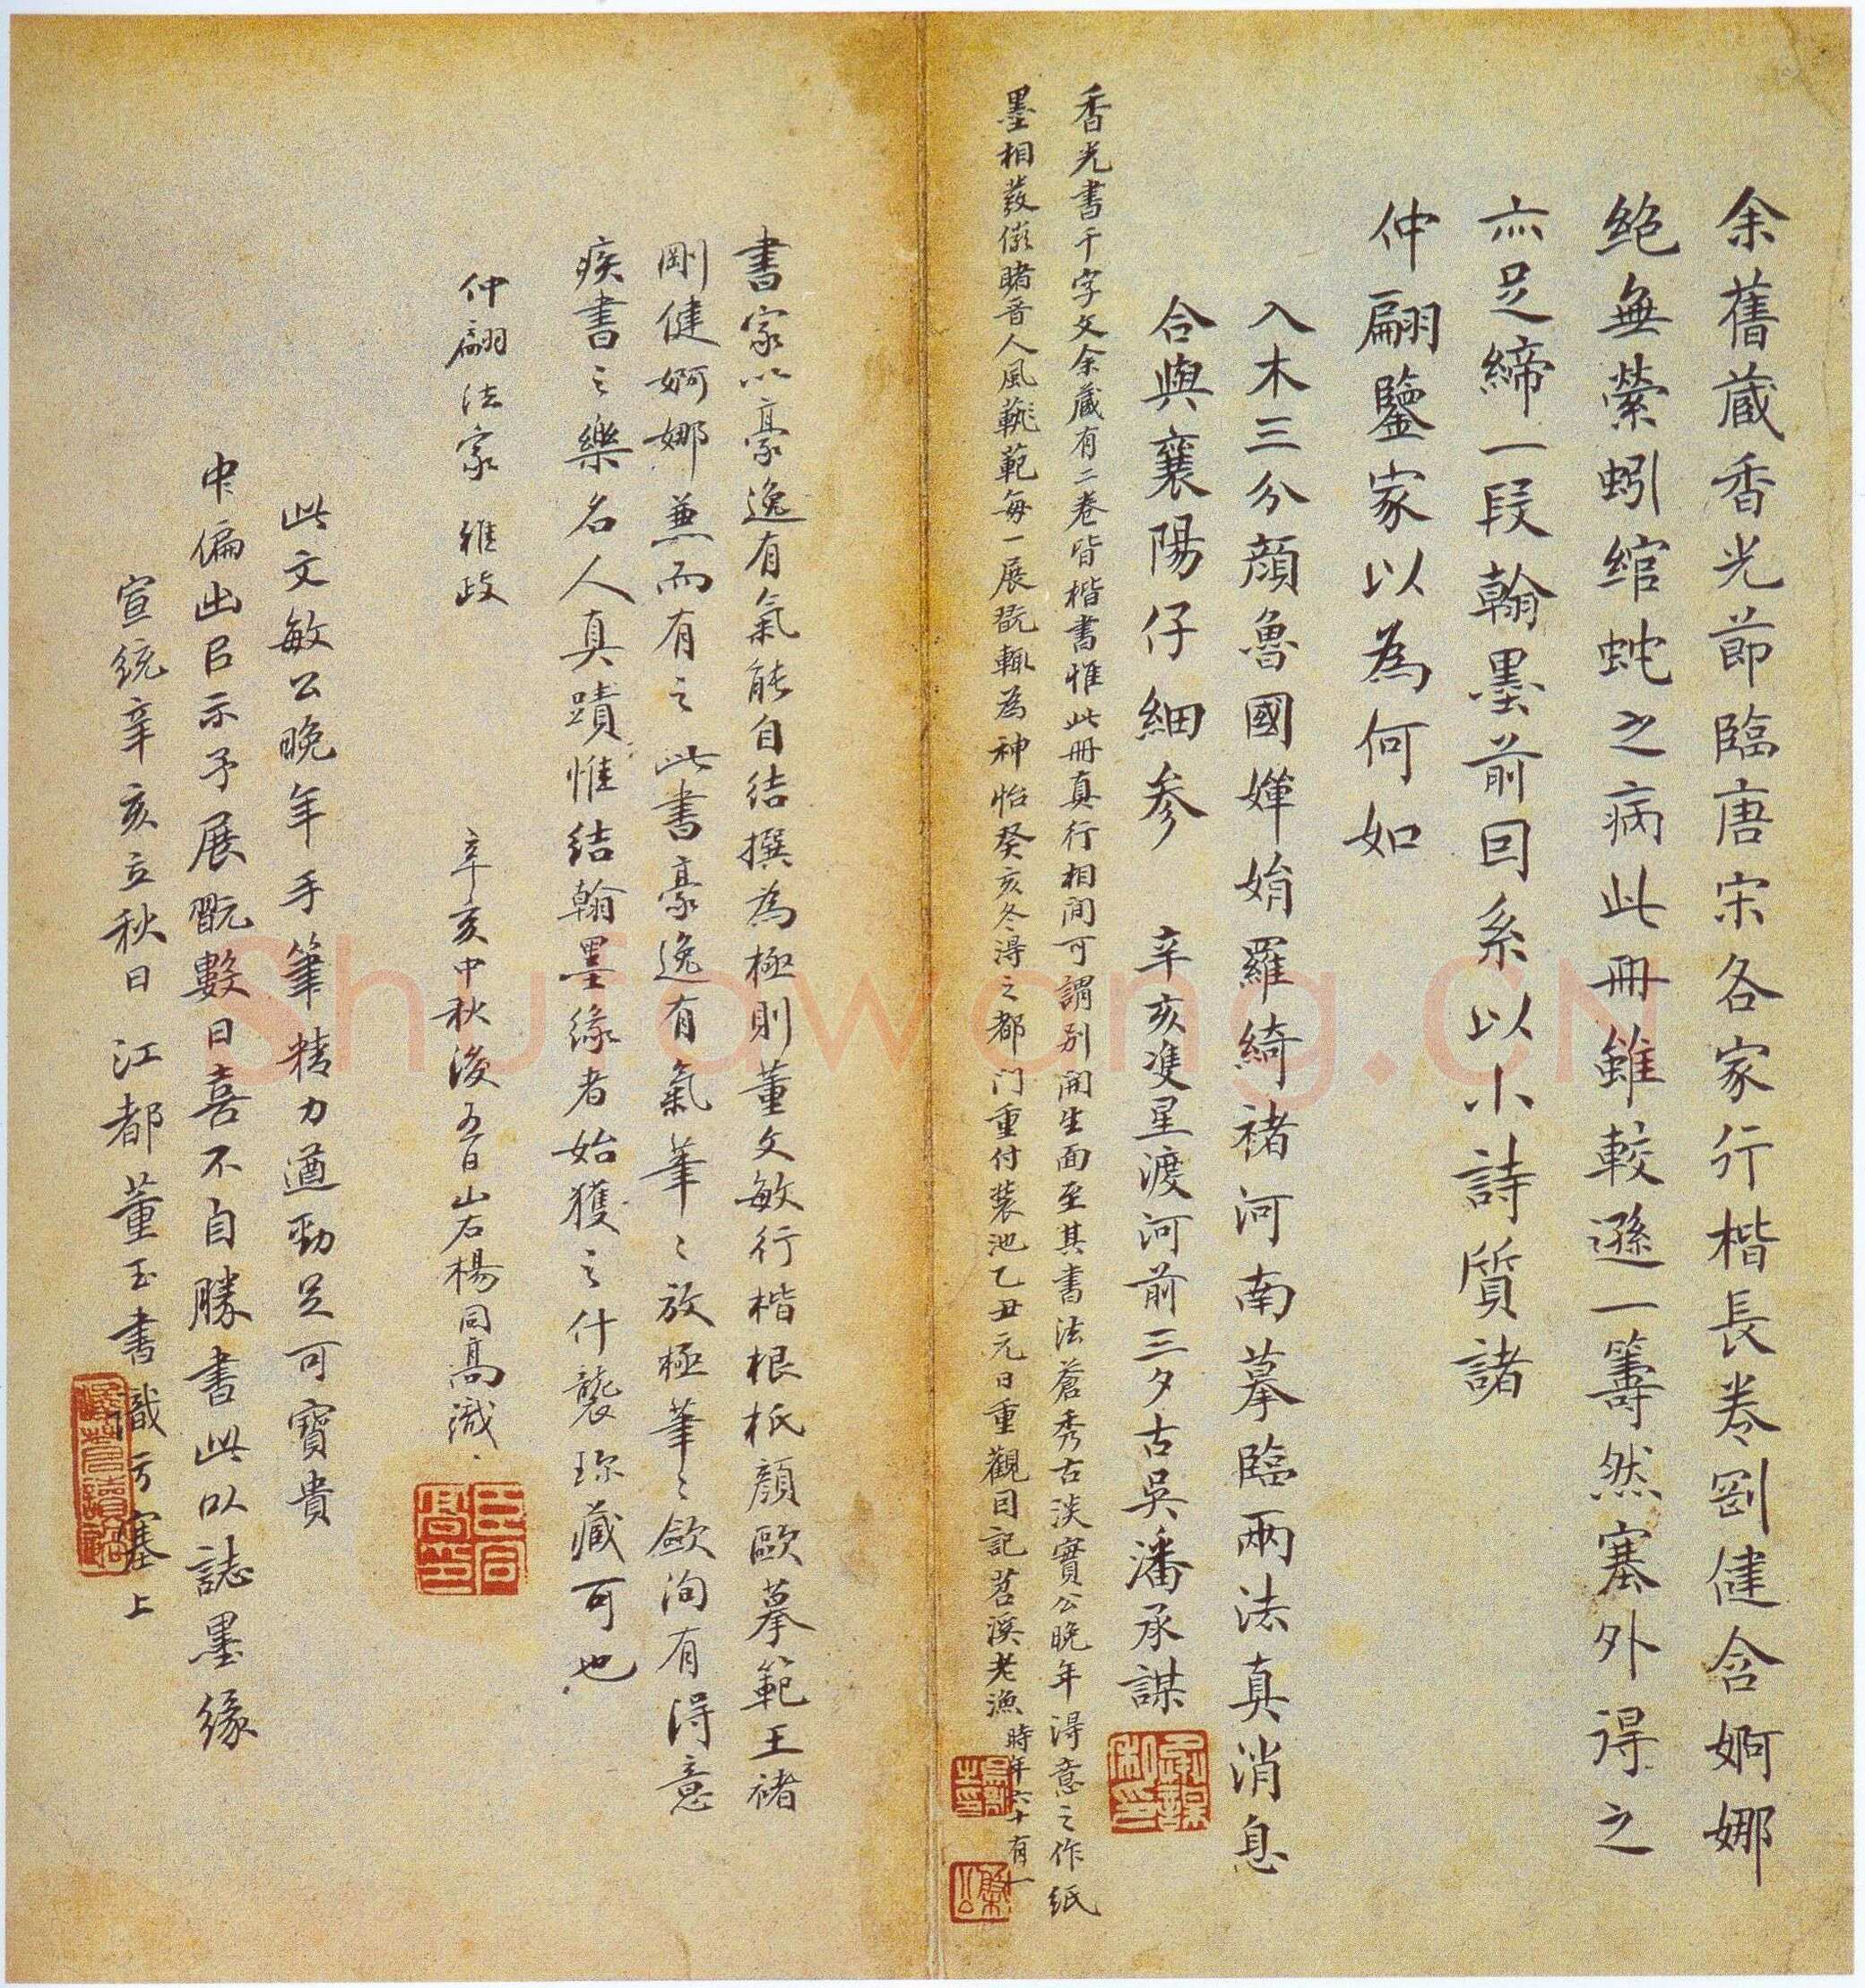 余舊蔵香光節臨唐宋各家行楷長卷剛健含婀娜
絕無縈蚓綰蛇之病此冊雖較遜一籌然塞外得之
亦足締一段翰墨前因系以小詩質諸
仲翩鑒家以為何如
入木三分顏魯國嬋娟羅綺褚河南摹臨兩法真消息
合與襄陽仔細參 辛亥雙星渡河前三夕古吳潘承謀
香光書千字文余藏有二卷皆楷書惟此冊真行相間可謂別開生面至其書法蒼秀古淡實公晚年得意之作紙
墨相發儼睹晉人風範每一展翫輒為神怡癸亥冬得之都门重付裝池乙丑元日重觀因記苕溪老漁時年六十有一
書家以豪逸有氣能自結撰為極則董文敏行楷根柢顏歐摹範王褚
剛健婀娜兼而有之此書豪逸有氣筆〻放極筆〻歛洵有得意
疾書之樂名人真蹟惟結翰墨緣者始獲之什襲珍藏可也
仲翩法家雅政
辛亥中秋後五日山右楊同高識
此文敏公晚年手筆精力遒勁足可寶貴
中偏出㠯示予展翫數日喜不自勝書此以誌墨緣
宣統辛亥立秋日 江都董玉書識於塞上
Shufawang.CN